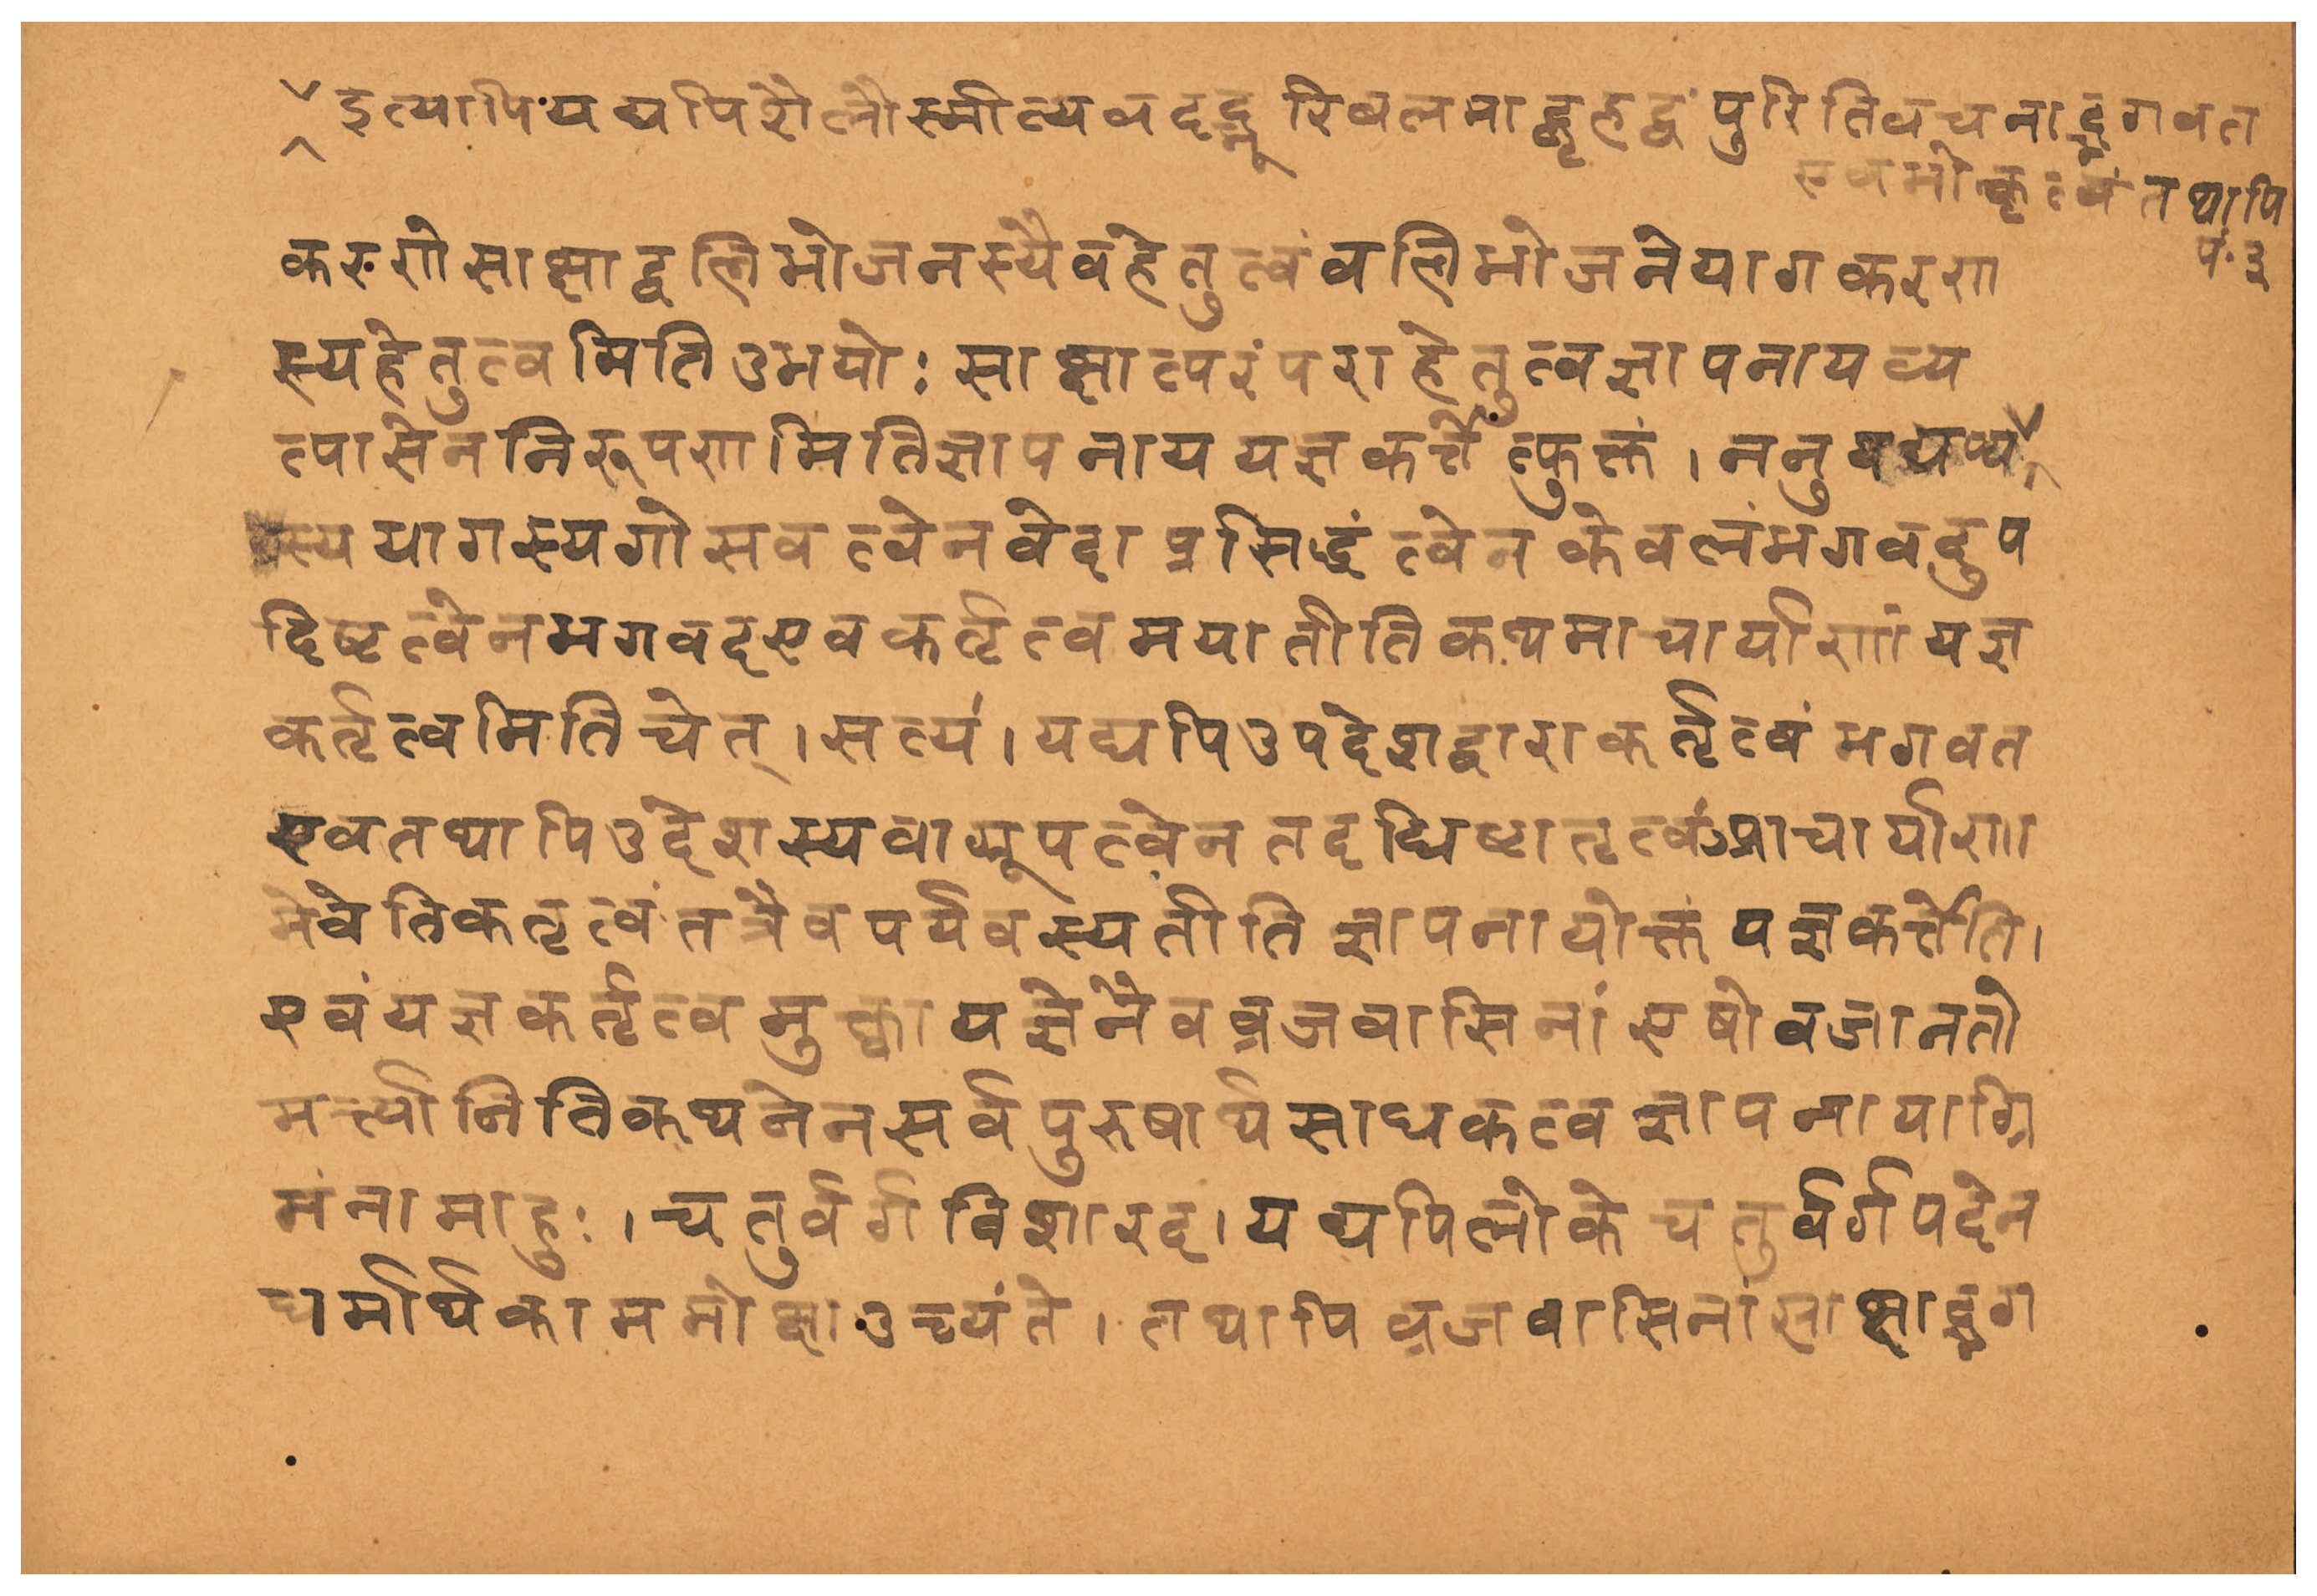 इत्यापि यद्यपि शैलोस्मीत्यवदद्भूरिबलमाद्बृहद्वपुरितिवचनाद्भगवत
एवभोकृत्वं तथापि
पं. ३
करणे साक्षाद्बलिभोजनस्यैव हेतुत्वं वलिभोजने यागकरण
स्य हेतुत्वमिति उभयोः साक्षात्परंपराहेतुत्वज्ञापनाय व्य
त्यासेन निरूपणमिति ज्ञापनाय यज्ञकर्त्तेत्युक्तं । ननु यद्यप्य
स्य यागस्य गोसवत्वेन वेदाप्रसिद्धत्वेन केवलं भगवदुप
दिष्टत्वेन भगवद एव कर्तृत्वमयातीति कथमाचार्याणां यज्ञ
कर्तृत्वमिति चेत् । सत्यं । यद्यपि उपदेशद्वारा कर्तृत्वं भगवत
एव तथापि उद्देशस्य वाग्रूपत्वेन तदधिष्टातृत्वंआचार्याणा
मेवेति कतृत्वं तत्रैव पर्यवस्यतीति ज्ञापनायोक्तं यज्ञकर्त्तेति ।
एवं यज्ञकर्तृत्वमुक्त्वा यज्ञेनैव व्रजवासिनां एषोवजानतो
मर्त्यानिति कथनेन सर्वपुरुषार्थसाधकत्वज्ञापनायाग्रि
मं नामाहुः । चतुर्वर्गविशारद । यद्यपि लोके चतुर्वर्गपदेन
धर्मार्थकाममोक्षा उच्यंते । तथापि व्रजवासिनां साक्षाद्भग